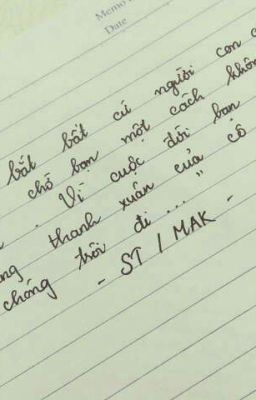 Memo
Date
bắt bất cứ người con
chờ bạn một cách không
. Vì cuộc đời bạn
thanh xuân của cô
chóng trôi đi ... "
- ST / MAK -